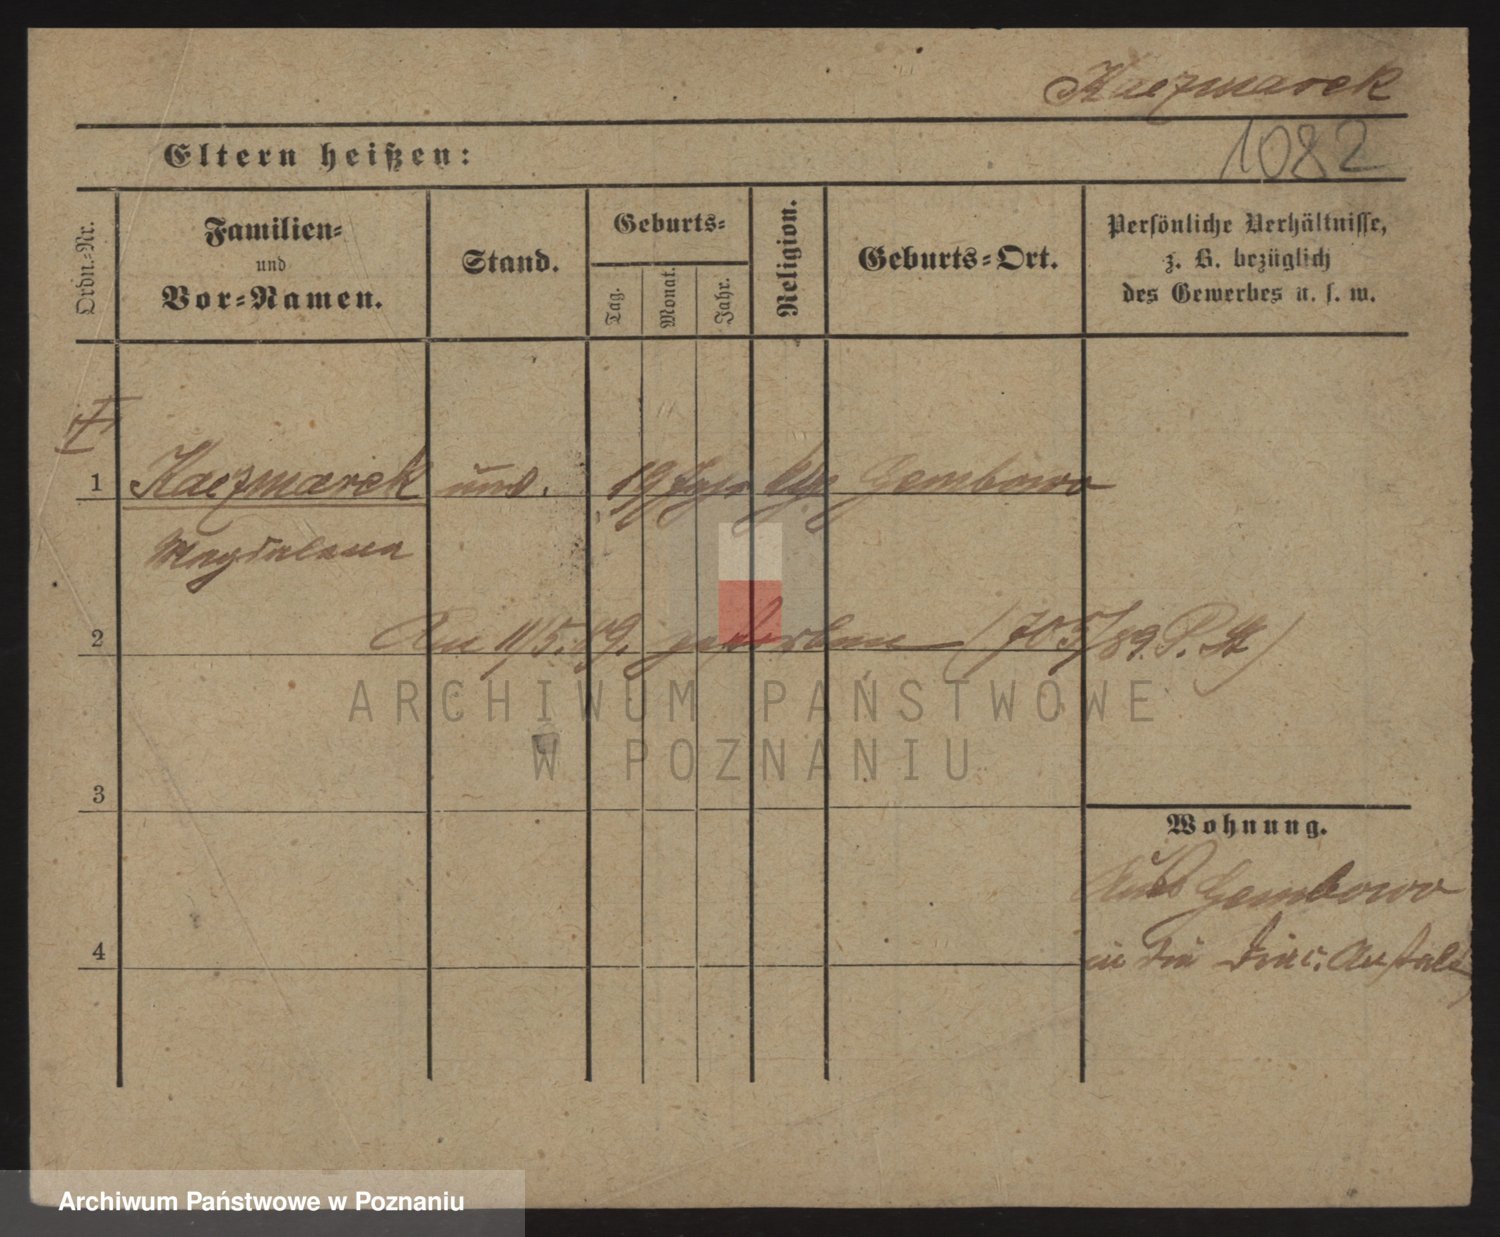 Kaczmarek
1082
Eltern heißen:
Ordn.-Nr.
Familien-
und
Vor-Namen.
Stand.
Geburts-
Tag.
Monat.
Jahr.
Religion.
Geburts-Ort.
Persönliche Verhältnisse,
z. B. bezüglich
des Gewerbes u. s. w.
1 Kaczmarek unv. 19 Jahr Gembowo
Magdalena
2 Am 11/5.89. gestorben (705/89. P. St)
ARCHIWUM PAŃSTWOWE
W POZNANIU
3
Wohnung.
Aus Gembowo
in die Diac. Anstalt
4
Archiwum Państwowe w Poznaniu